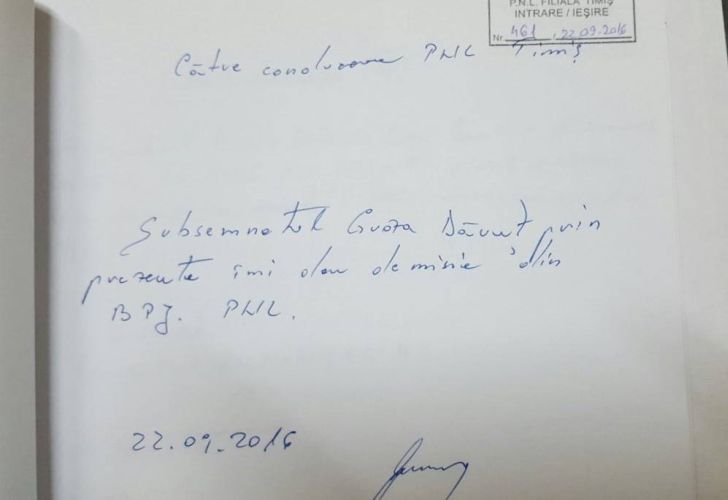 P.N.L. FILIALA TIMIȘ
INTRARE / IEȘIRE
Nr. 461, 22.09.2016
Către conducerea PNL Timiș
Subsemnatul Gvoza Dănuț prin
prezenta îmi dau demisie din
BPJ. PNL.
22.09.2016